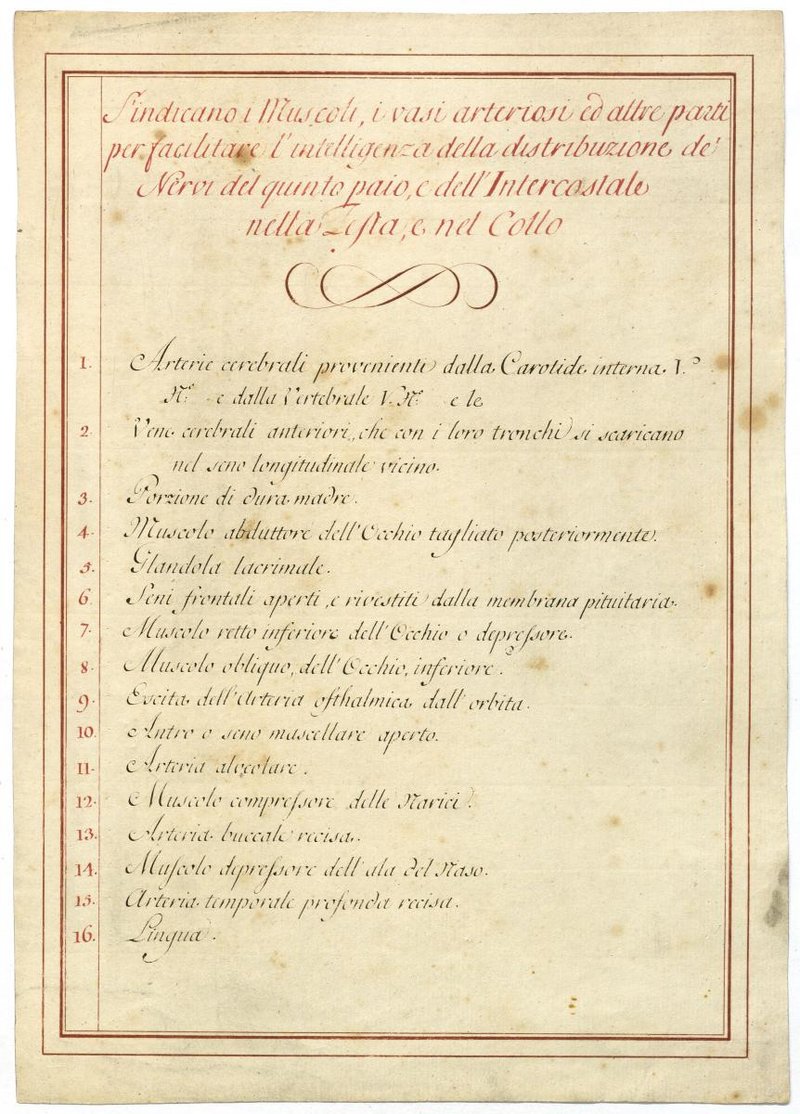 S'indicano i Muscoli, i vasi arteriosi ed altre parti
per facilitare l'intelligenza della distribuzione de'
Nervi del quinto paio, e dell'Intercostale
nella Testa, e nel Collo
1. Arterie cerebrali provenienti dalla Carotide interna V.º
N.º e dalla Vertebrale V. N.º e le
2. Vene cerebrali anteriori, che con i loro tronchi si scaricano
nel seno longitudinale vicino.
3. Porzione di dura madre.
4. Muscolo abduttore dell'Occhio tagliato posteriormente.
5. Glandola lacrimale.
6. Seni frontali aperti, e rivestiti dalla membrana pituitaria.
7. Muscolo retto inferiore dell'Occhio o depressore.
8. Muscolo obliquo, dell'Occhio, inferiore.
9. Escita dell'Arteria ofthalmica dall'orbita.
10. Antro o seno mascellare aperto.
11. Arteria alveolare.
12. Muscolo compressore delle Narici.
13. Arteria buccale recisa.
14. Muscolo depressore dell'ala del Naso.
15. Arteria temporale profonda recisa.
16. Lingua.